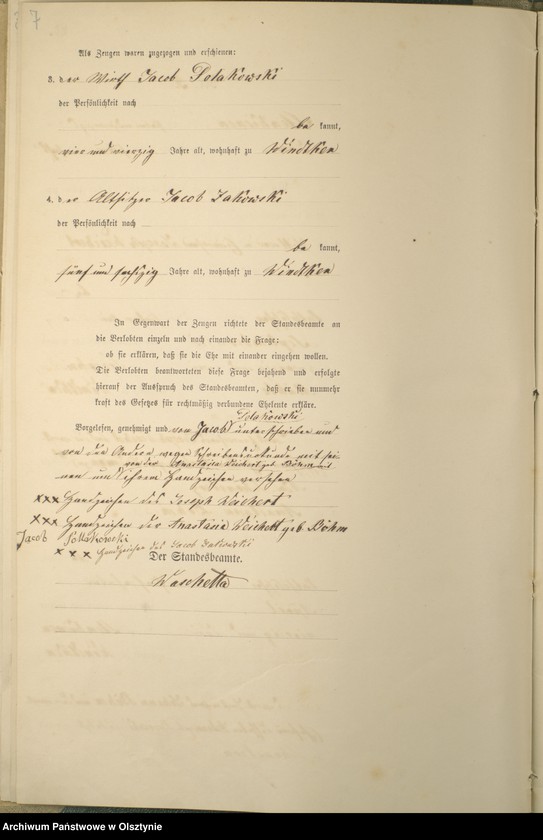 7
Als Zeugen waren zugezogen und erschienen:
3. der Wirth Jacob Polakowski
der Persönlichkeit nach
be kannt,
vier und vierzig Jahre alt, wohnhaft zu Windtken
4. der Altsitzer Jacob Zakowski
der Persönlichkeit nach
be kannt,
fünf und sechszig Jahre alt, wohnhaft zu Windtken
In Gegenwart der Zeugen richtete der Standesbeamte an
die Verlobten einzeln und nach einander die Frage:
ob sie erklären, daß sie die Ehe mit einander eingehen wollen.
Die Verlobten beantworteten diese Frage bejahend und erfolgte
hierauf der Ausspruch des Standesbeamten, daß er sie nunmehr
kraft des Gesetzes für rechtmäßig verbundene Eheleute erkläre.
Polakowski
Vorgelesen, genehmigt und von Jacob unterschrieben und
von den Andern wegen Schreibensunkunde mit sei-
von der Anastasia Weichert geb Böhm mit
nem und ihrem Handzeichen versehen
xxx Handzeichen des Joseph Weichert
xxx Handzeichen der Anastasia Weichert geb Böhm
Jacob Pollakowski
x x x Handzeichen des Jacob Zakowski
Der Standesbeamte.
Waschetta
Archiwum Państwowe w Olsztynie